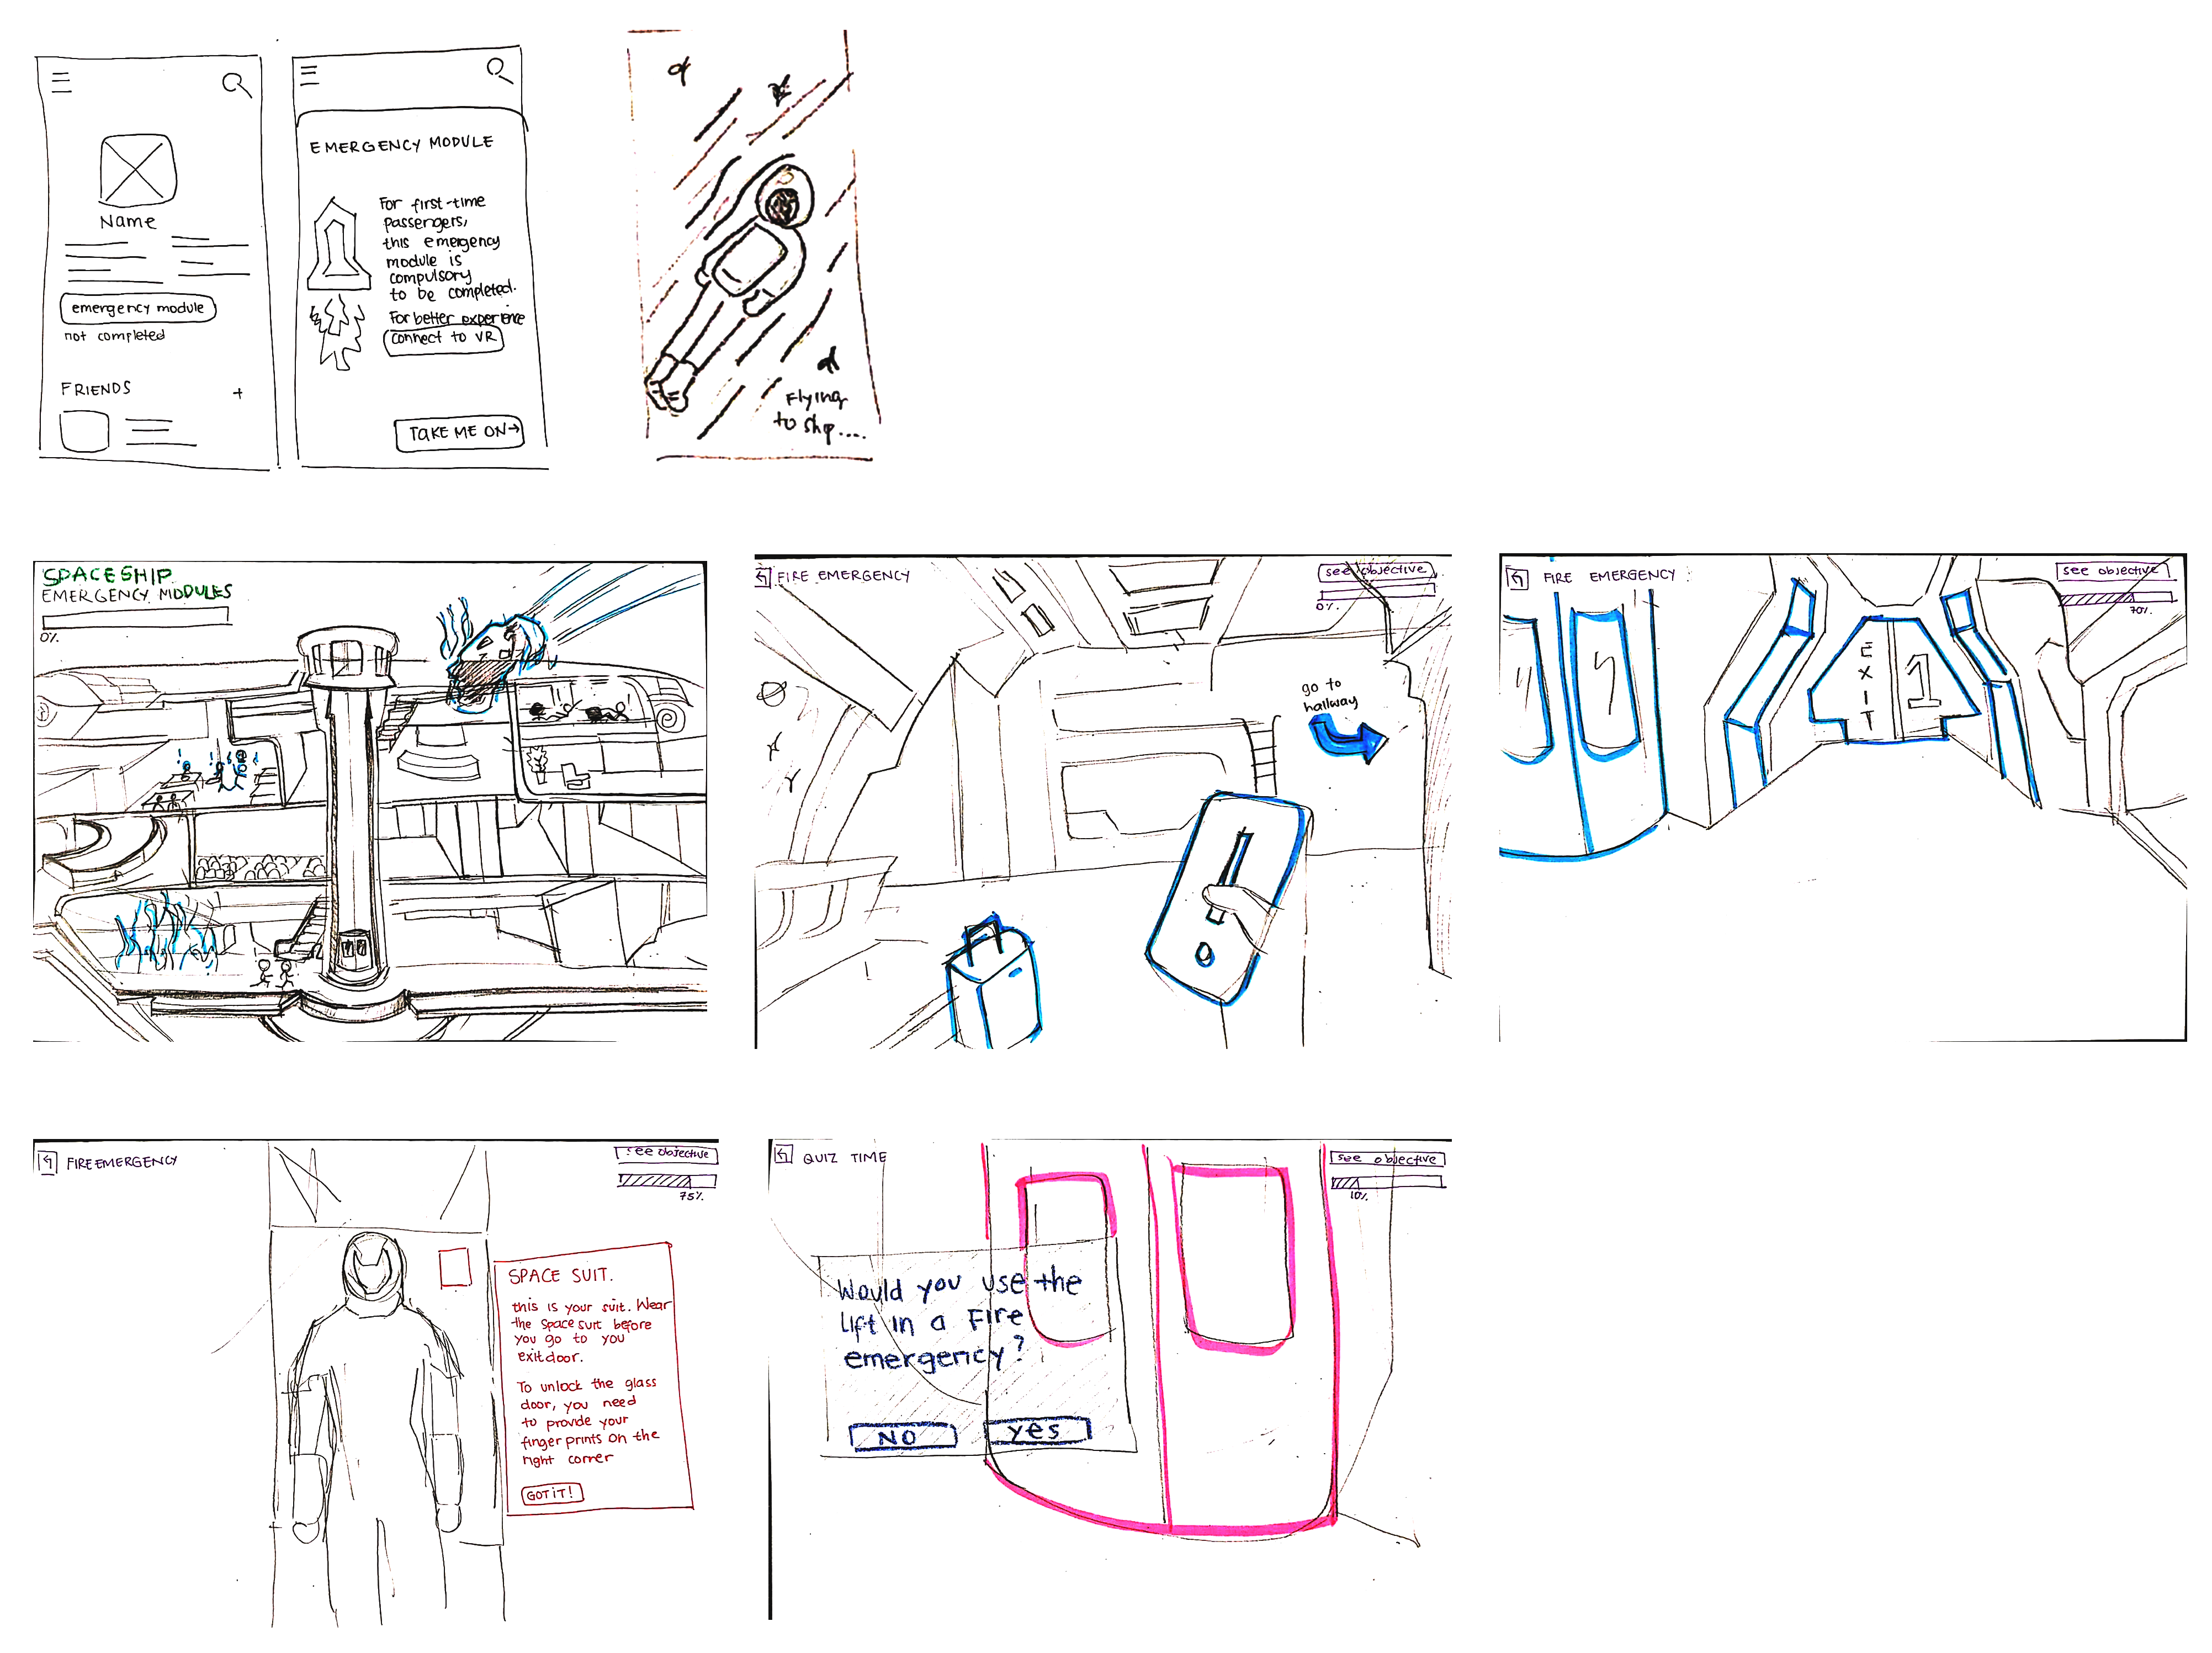 Name
emergency module
not completed
FRIENDS
+
EMERGENCY MODULE
For first-time
passengers,
this emergency
module is
compulsory
to be completed.
For better experience
connect to VR
TAKE ME ON→
Flying
to ship....
SPACESHIP
EMERGENCY MODULES
0%
FIRE EMERGENCY
see objective
0%
go to
hallway
FIRE EMERGENCY
see objective
70%
EXIT
1
FIRE EMERGENCY
see objective
75%
SPACE SUIT.
this is your suit. Wear
the space suit before
you go to you
exit door.
To unlock the glass
door, you need
to provide your
finger prints on the
right corner
GOT IT!
QUIZ TIME
see objective
10%
Would you use the
lift in a Fire
emergency?
NO
yes